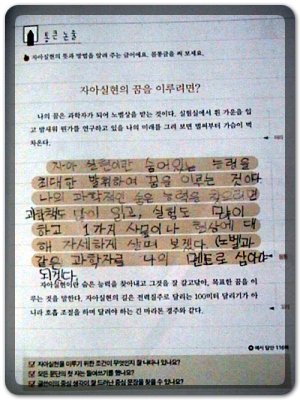 통큰 논술
자아실현의 뜻과 방법을 알려 주는 글이에요. 몸통글을 써 보세요.
자아실현의 꿈을 이루려면?
나의 꿈은 과학자가 되어 노벨상을 받는 것이다. 실험실에서 흰 가운을 입
고 밤새워 뭔가를 연구하고 있을 나의 미래를 그려 보면 벌써부터 가슴이 벅
차온다.
자아 실현이란 숨어있는 능력을
최대한 발휘하여 꿈을 이루는 것이다
나의 과학적인 숨은 능력을 키우려면
과학책도 많이 읽고, 실험도 많이
하고 1가지 사물이나 현상에 대
해 자세하게 살펴 보겠다. 노벨과
같은 과학자를 나의 멘토로 삼아야
되겠다.
자아실현이란 숨은 능력을 찾아내고 그것을 잘 갈고닦아, 목표한 꿈을 이
루는 것을 말한다. 자아실현의 길은 전력질주로 달리는 100미터 달리기가 아
니라 호흡 조절을 하며 달려야 하는 긴 마라톤 경주와 같다.
예시 답안 116쪽
자아실현을 이루기 위한 조건이 무엇인지 잘 나타나 있나요?
모든 문단의 첫 자는 들여쓰기를 했나요?
글쓴이의 중심 생각이 잘 드러난 중심 문장을 찾을 수 있나요?